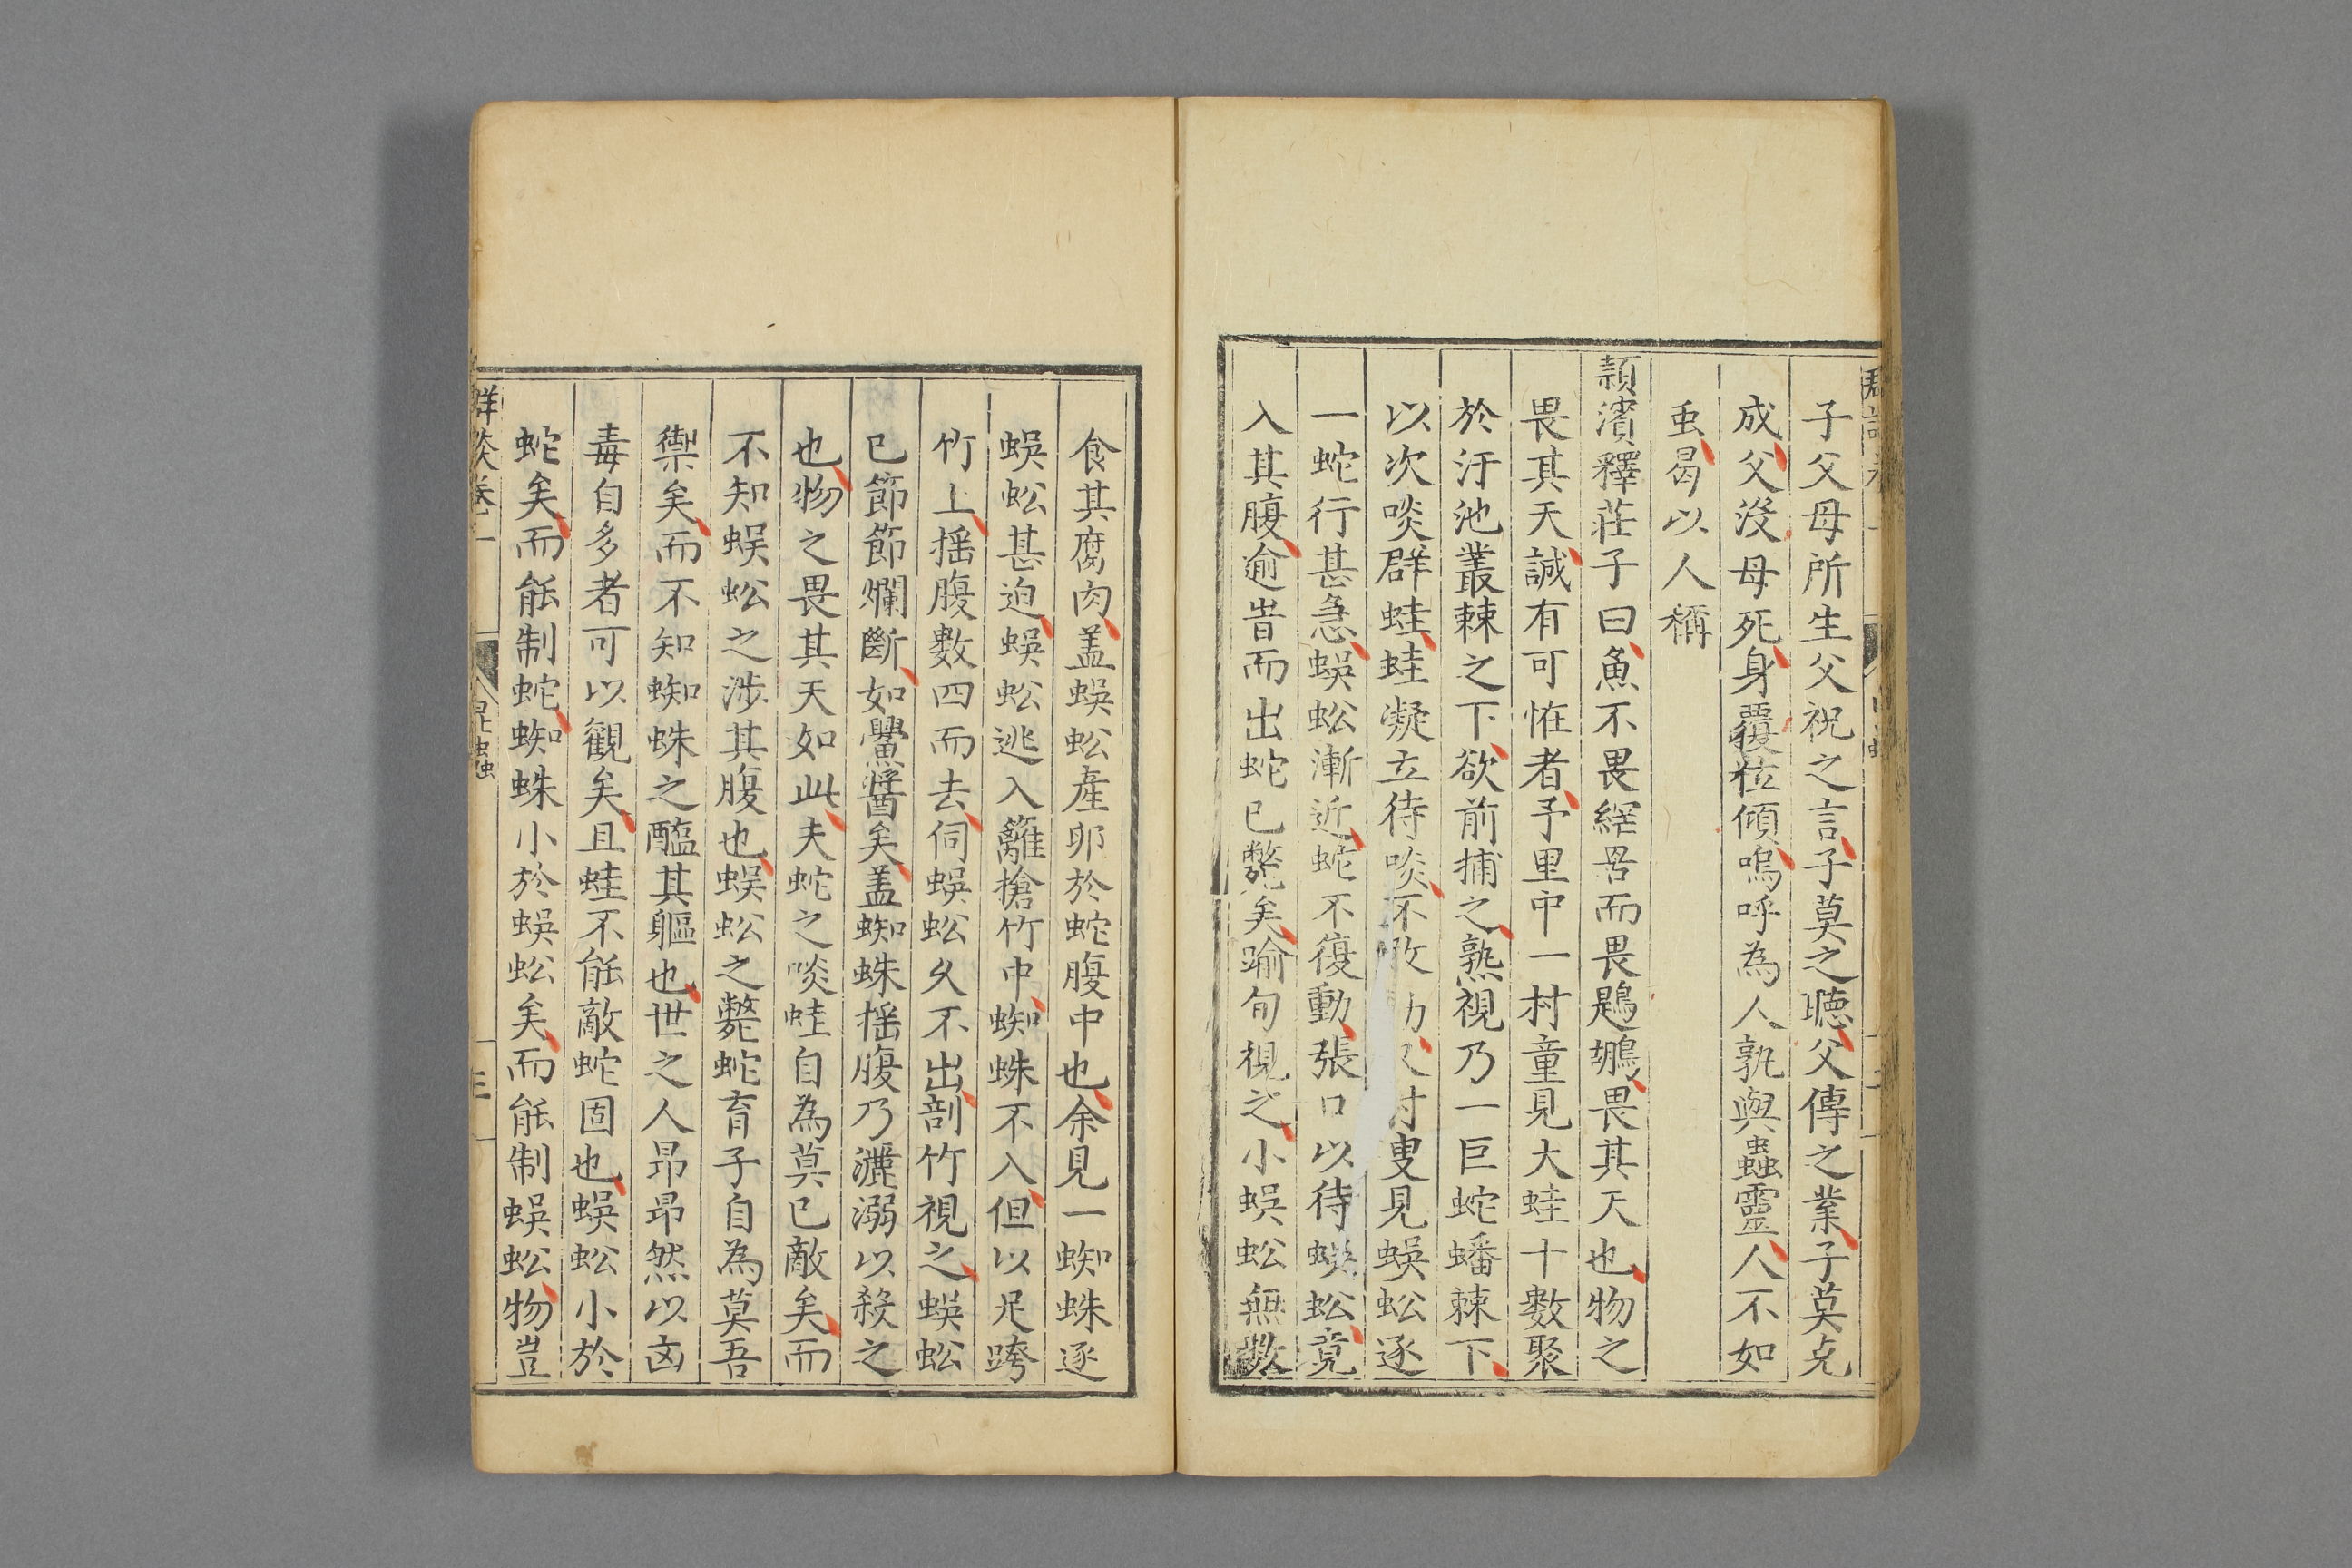 子父母所生父祝之言子莫之聽父傳之業子莫克
成父沒母死身覆粒傾嗚呼為人孰與蟲靈人不如
䖝曷以人稱
潁濱釋莊子曰魚不畏網罟而畏鵜鶘畏其天也物之
畏其天誠有可恠者予里中一村童見大蛙十數聚
於汙池叢棘之下欲前捕之熟視乃一巨蛇蟠棘下
以次啖群蛙蛙凝立待啖不敢叟見蜈蚣逐
一蛇行甚急蜈蚣漸近蛇不復動張口以待蜈蚣竟
入其腹逾昔而出蛇已斃矣踰旬視之小蜈蚣無數
食其腐肉盖蜈蚣產卵於蛇腹中也余見一蜘蛛逐
蜈蚣甚迫蜈蚣逃入籬搶竹中蜘蛛不入但以足跨
竹上揺腹數四而去伺蜈蚣久不出剖竹視之蜈蚣
已節節爛斷如鱟醬矣盖蜘蛛揺腹乃灑溺以殺之
也物之畏其天如此夫蛇之啖蛙自為莫已敵矣而
不知蜈蚣之涉其腹也蜈蚣之斃蛇育子自為莫吾
禦矣而不知蜘蛛之醢其軀也世之人昂昂然以卤
毒自多者可以觀矣且蛙不能敵蛇固也蜈蚣小於
蛇矣而能制蛇蜘蛛小於蜈蚣矣而能制蜈蚣物豈
昆蟲